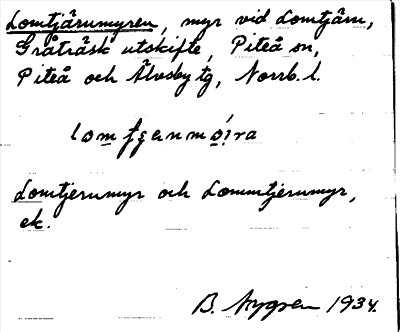 Lomtjärumyren, myr vid Lomtjärn,
Gråträsk utskifte, Piteå sn,
Piteå och Älvsby tg, Norrb. l.
Lomtjerumyr och Lommtjerumyr,
ek.
B. Nygren 1934.